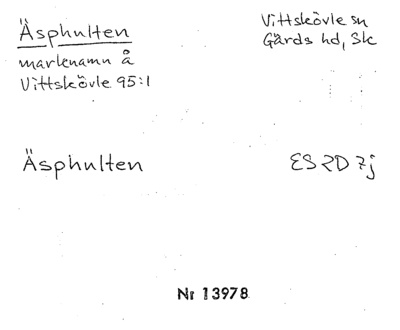 Äsphulten
marknamn å
Vittskövle 95:1
Vittskövle sn
Gärds hd, Sk
Äsphulten
ES 2D 7j
Nr 13978